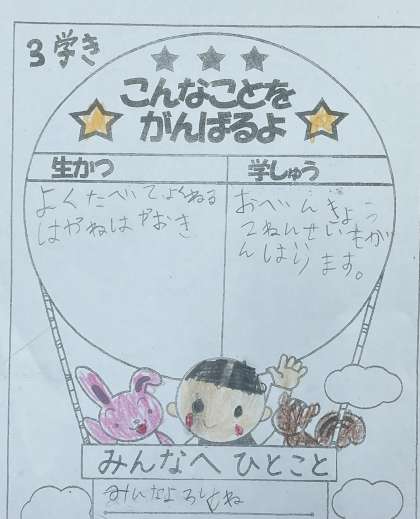 3学き
こんなことを
がんばるよ
生かつ
よくたべてよくねる
はやねはやおき
学しゅう
おべんきょう
2ねんせいもが
んばります。
みんなへ ひとこと
みんなよろしくね